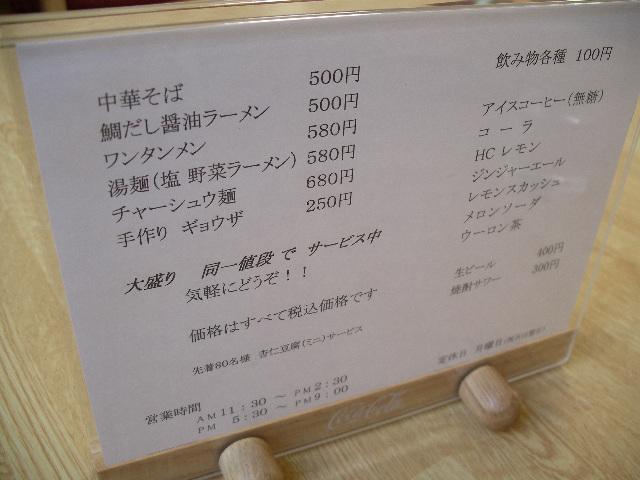 中華そば 500円
鯛だし醤油ラーメン 500円
ワンタンメン 580円
湯麺(塩 野菜ラーメン) 580円
チャーシュウ麺 680円
手作り ギョウザ 250円
大盛り 同一値段 で サービス中
気軽にどうぞ！！
価格はすべて税込価格です
先着80名様 杏仁豆腐(ミニ)サービス
営業時間
AM 11：30 ～ PM 2：30
PM 5：30 ～ PM 9：00
飲み物各種 100円
アイスコーヒー(無糖)
コーラ
HCレモン
ジンジャーエール
レモンスカッシュ
メロンソーダ
ウーロン茶
生ビール 400円
焼酎サワー 300円
定休日 月曜日
Coca-Cola